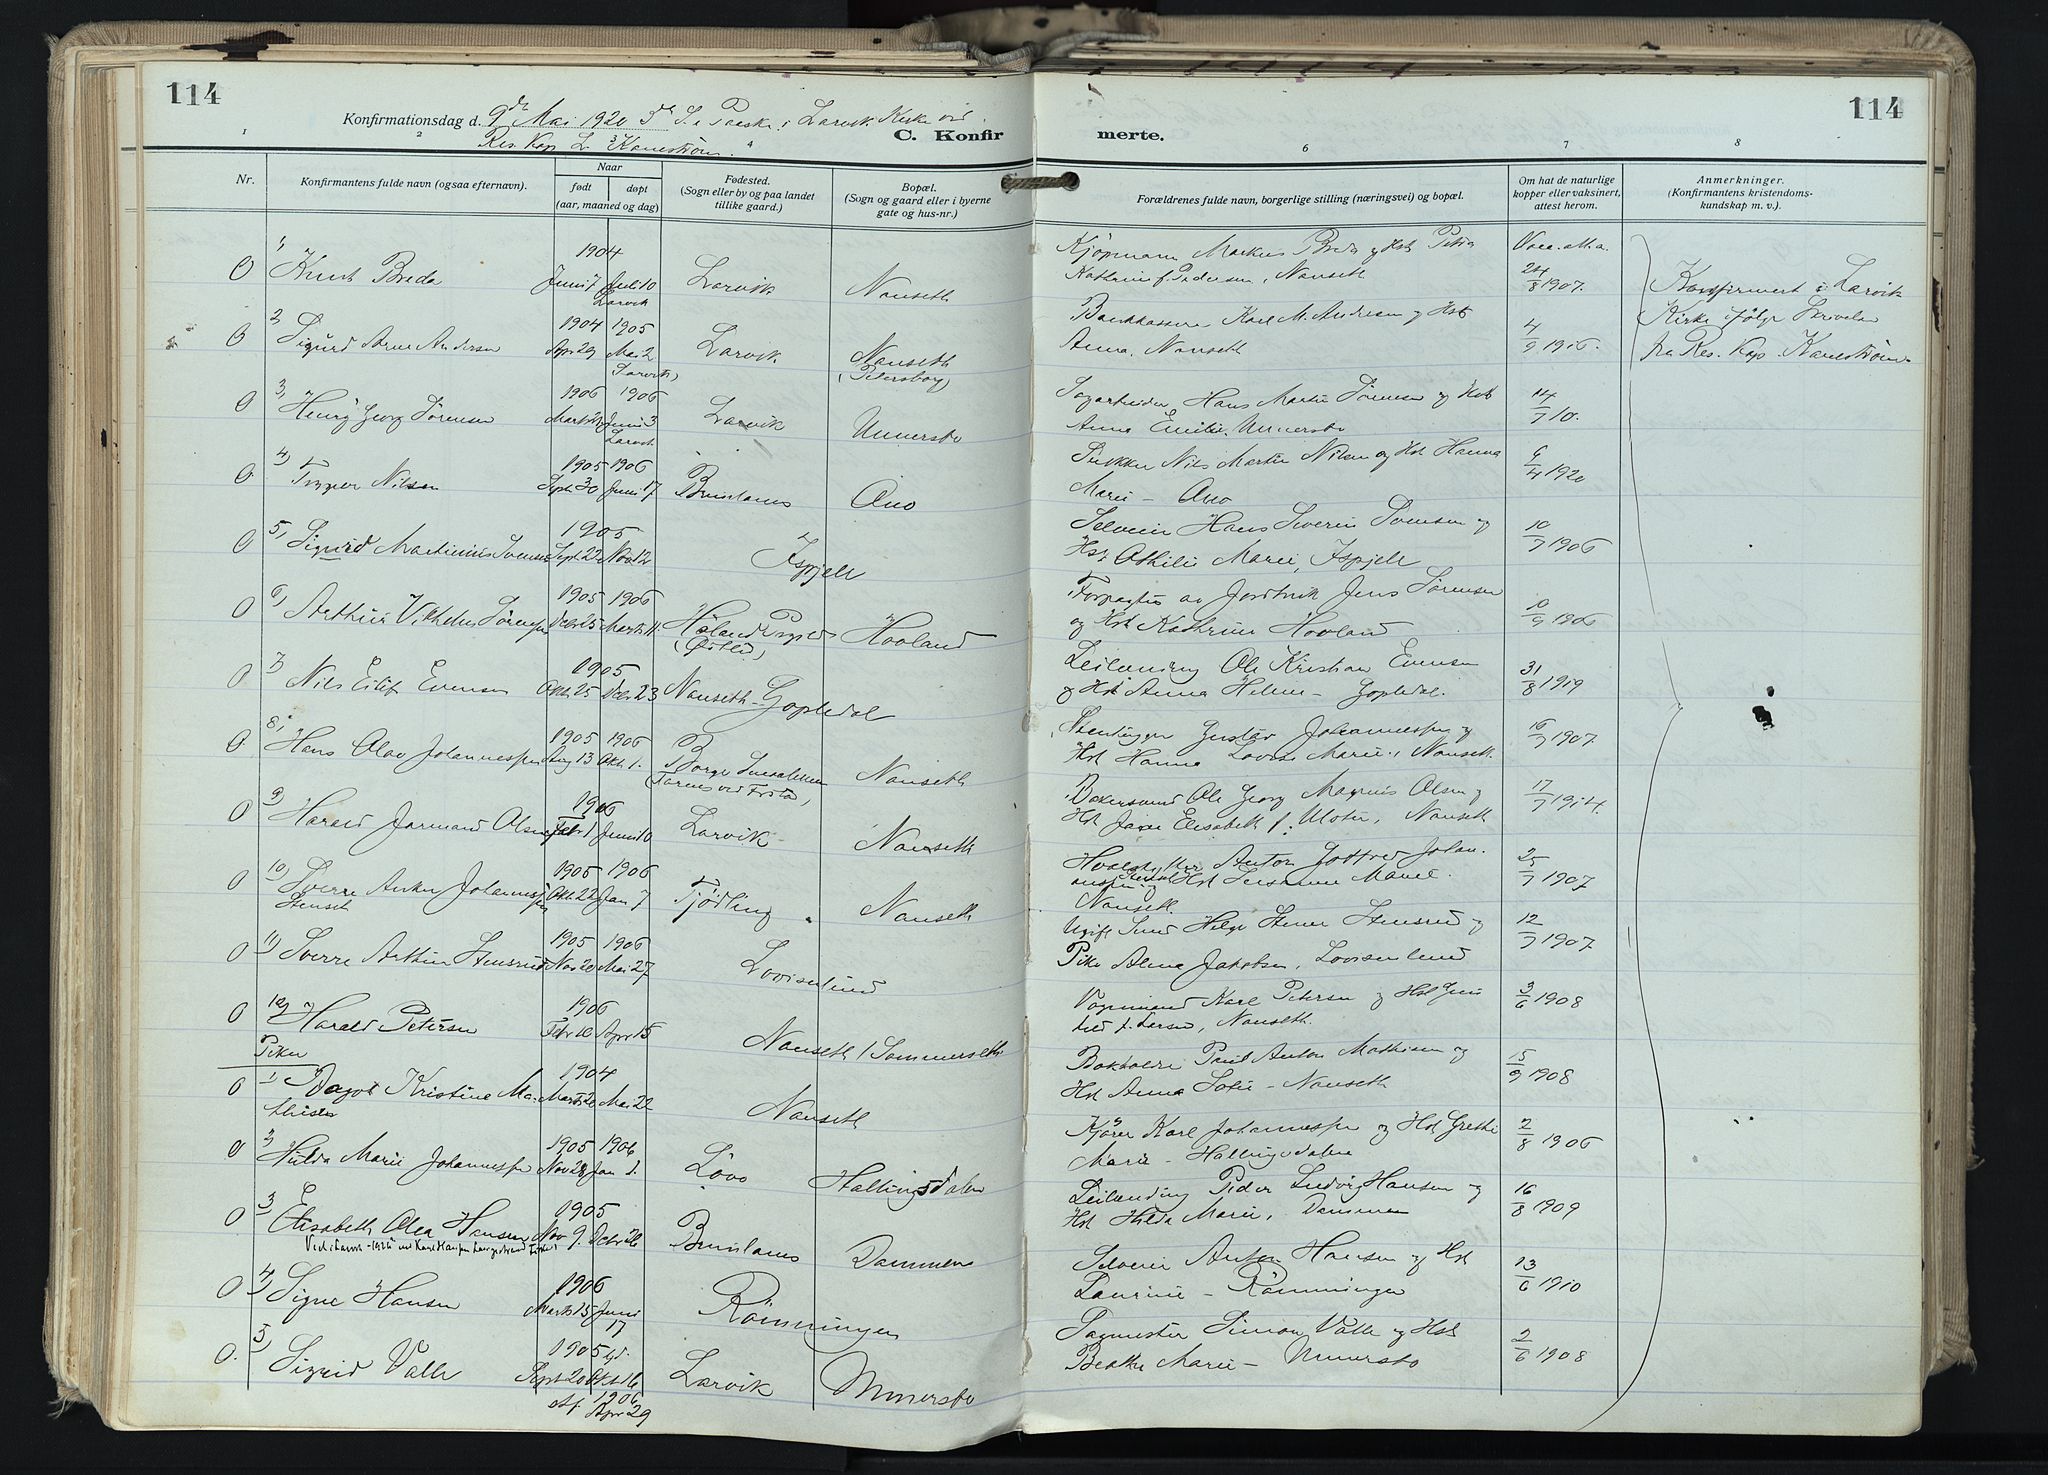 114
114
Konfirmationsdag d. 9de Mai 1920 5te S. e Paaske i Larvik Kirke ved
Res. Kap L. Kanestrøm.
C. Konfir merte.
1 2 3 4 6 7 8
Nr.
Konfirmantens fulde navn (ogsaa efternavn).
Naar
født døpt
(aar, maaned og dag)
Fødested.
(Sogn eller by og paa landet
tillike gaard.)
Bopæl.
(Sogn og gaard eller i byerne
gate og hus-nr.)
Forældrenes fulde navn, borgerlige stilling (næringsvei) og bopæl.
Om hat de naturlige
kopper eller vaksinert,
attest herom.
Anmerkninger.
(Konfirmantens kristendoms-
kundskap m. v.).
1904
0 1) Knut Breda Juni 7 Juli 10 Larvik Nanseth
Larvik
Kjøpmann Markus Breda og Hst Petra
Kathrine f. Pedersen, Nanseth
Vacc. att. a.
24/8 1907.
Konfirmert i Larvik
Kirke ifølge Skrivelse
fra Res. Kap. Kanestrøm.
1904 1905
0 2) Sigurd Arne Andersen Apr 29 Mai 2 Larvik Nanseth
Larvik (Petersborg)
Bankkasserer Karl M. Andresen og Hst
Anna, Nanseth
4/9 1916.
1906 1906
0 3) Henry Georg Sørensen Juni 3 Larvik Unnersbo
Larvik
Sagarbeider Hans Martin Sørensen og Hst
Anna Emilie, Unnersbo
14/7 10.
1905 1906
0 4) Trygve Nilsen Sept. 30 Juni 17 Brunlanes Ono
Nils Martin Nilsen og Hst Hanna
Marie - Ono
9/4 1920
1905
0 5) Sigurd Martinius Svensen Sept. 22 Nov 12 Ispjeld
Selveier Hans Severin Svensen og
Hst Othilie Marie, Ispjeld
10/7 1906
1905 1906
0 6) Arthur Vilhelm Sørensen Decbr 25 Marts 11. Høland Prgjeld Hovland
(Østld)
Forpagter av Jordbruk Jens Sørensen
og Hst Kathrine Hovland
10/9 1906
1905
0 7) Nils Eilif Evensen Okt. 25 Decbr 23 Nanseth - Gopledal
Leilending Ole Kristian Evensen
og Hst Anna Helene - Gopledal.
31/8 1919
1905 1906
0 8) Hans Olav Johannessen Aug 13 Okt. 1. Borge Nanseth
Stenhugger Gustav Johannessen og
Hst Hanna Lovise Marie, Nanseth.
16/7 1907.
1906
0 9) Harald Jarmand Olsen Febr 1 Juni 10 Larvik Nanseth
Bakersvend Ole Georg Magnus Olsen og
Hst Jane Elisabeth f. Nanseth
17/7 1914.
1905 1906
0 10) Sverre Anker Johannessen Okt. 22 Jan 7 Tjødling Nanseth
Stenseth
Anton Gotfred Johan-
Nanseth.
25/7 1907
1905 1906
0 11) Sverre Arthur Stensrud Nov 20 Mai 27 Lovisenlund
Ugift Smed Helge Stener Stensrud og
Pike Alma Jakobsen, Lovisenlund
12/7 1907
1906
0 12) Harald Petersen Febr 10 Apr 15 Nanseth / Sommerseth
Vognmand Karl Petersen og Hst Gun-
hild f. Larsen, Nanseth.
3/6 1908
Piker
1904
0 1) Dagot Kristine Ma- Mai 22 Nanseth
thisen
Bokholder Paul Anton Mathisen og
Hst Anna Sofie - Nanseth
15/9 1908
1905 1906
0 2) Hilda Marie Johannessen Nov 28 Jan 1. Løvø Hallingsdalen
Kjører Karl Johannessen og Hst Grethe
Marie - Hallingsdalen
2/8 1906
1905
0 3) Elisabeth Olea Hansen Nov 9. Decbr 26 Brunlanes Dammen
Leilending Peder Ludvig Hansen og
Hst Hilda Marie, Dammen
16/8 1909
1906
0 4) Signe Hansen Marts 15 Juni 17 Rømmingen
Selveier Anton Hansen og Hst
Laurine - Rømmingen
13/6 1910
1905
0. 5) Sigrid Valle Sept 20 Okt. 16 Larvik Unnersbo
1906
Apr 29
Sagmester Simon Valle og Hst
Beathe Marie - Unnersbo
2/6 1908